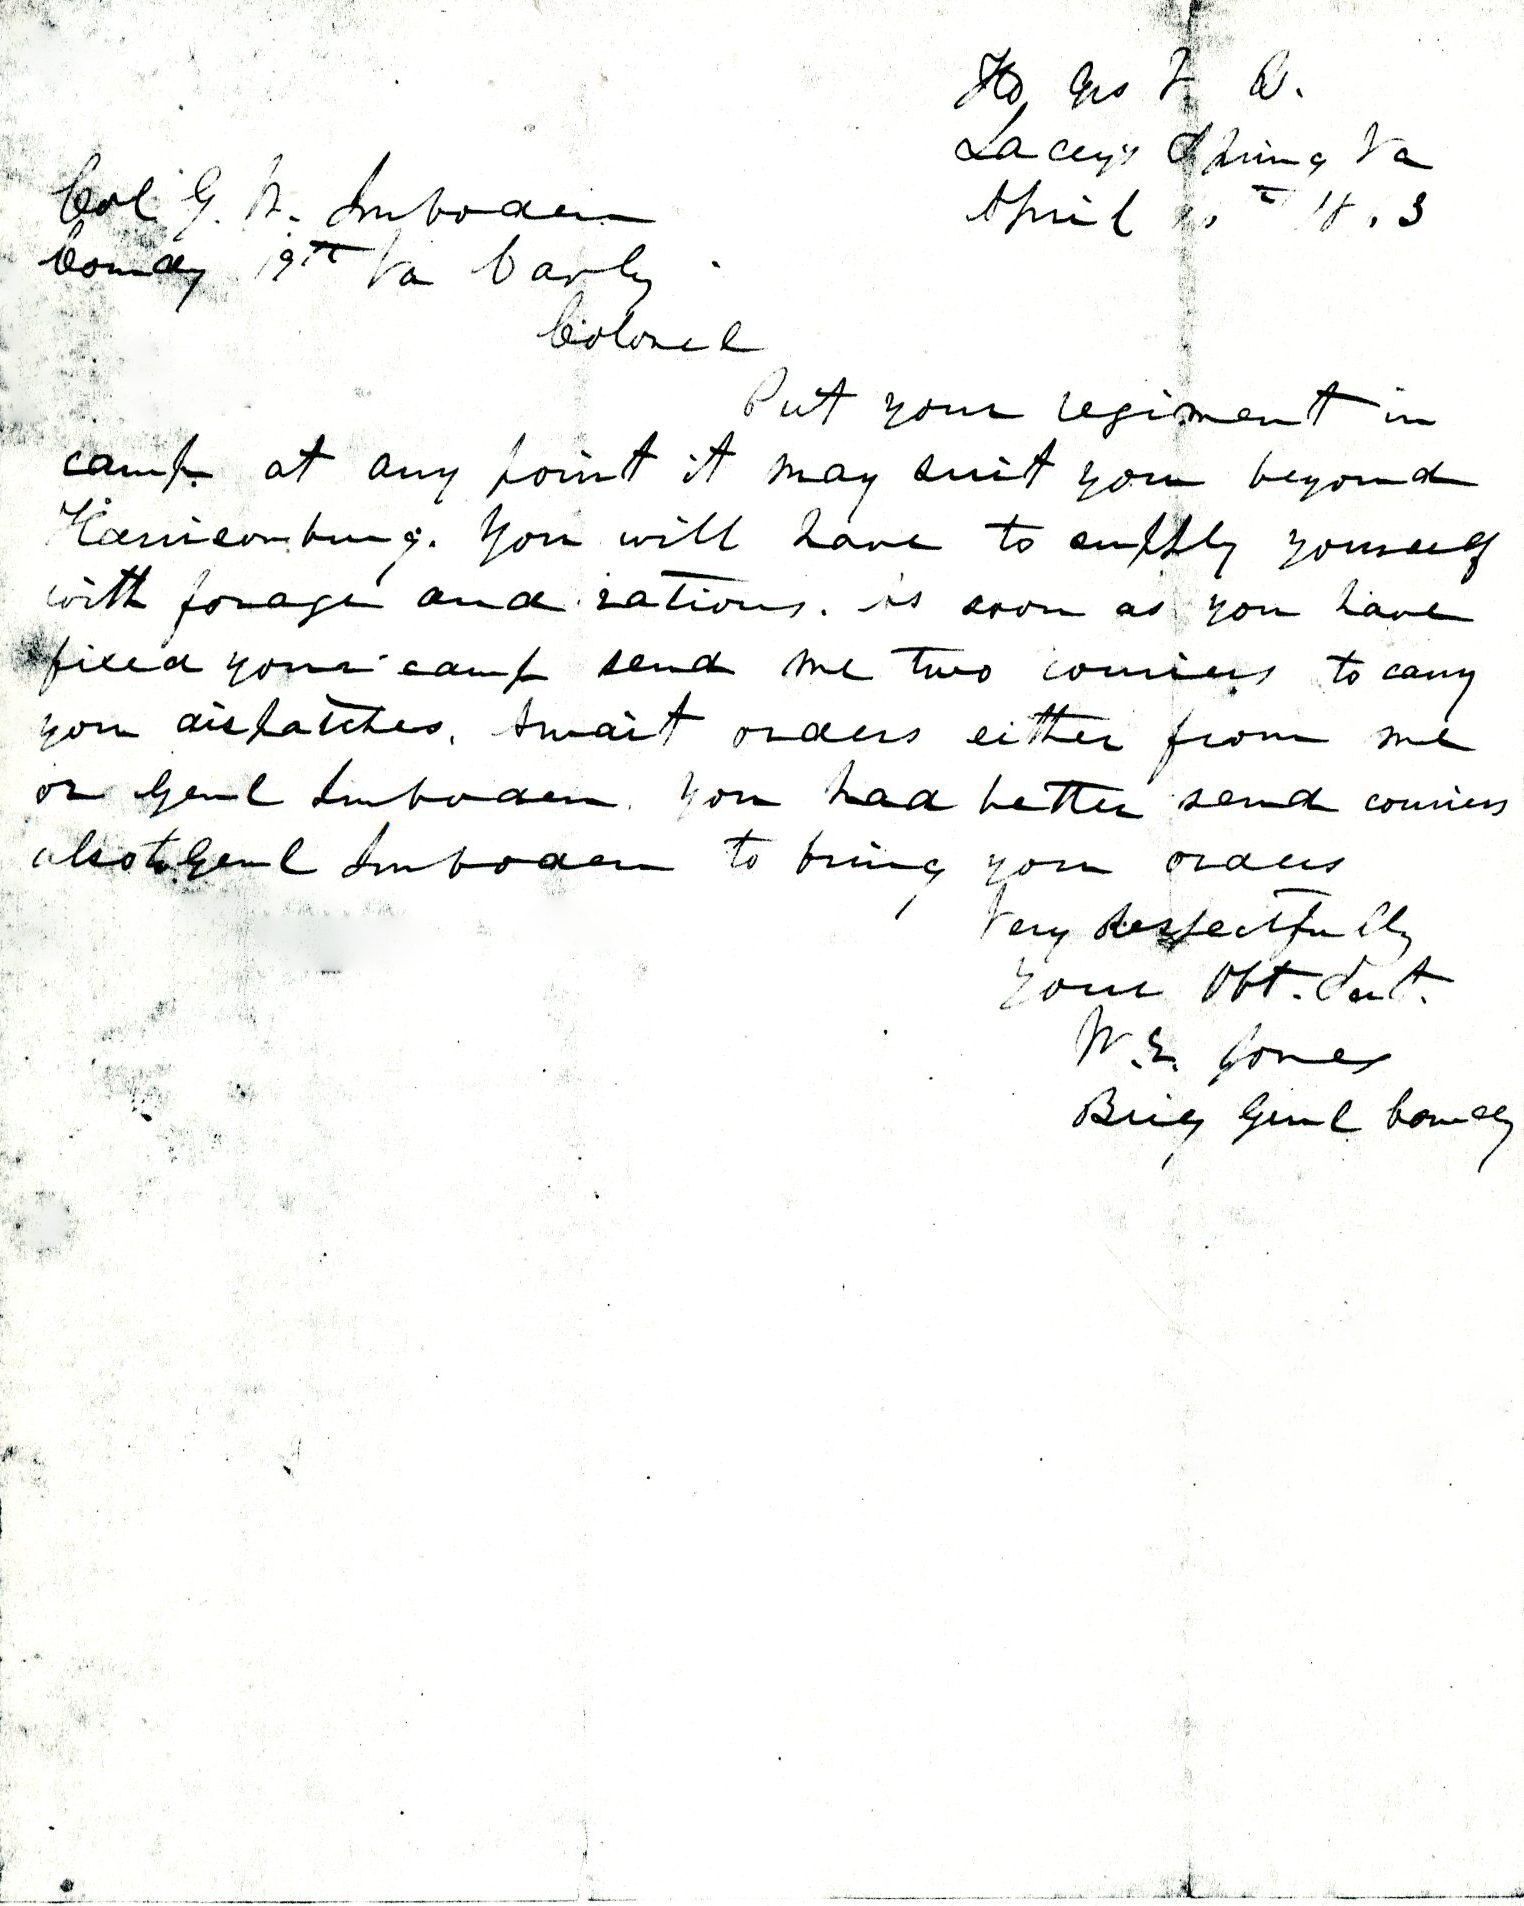 Hd Qrs V. D.
Lacey's Spring Va
April
Col G. W. Imboden
Comdg 19th Va Cavly.
Colonel
Put your regiment in
camp at any point it may suit you beyond
Harrisonburg. You will have to supply yourself
with forage and rations. As soon as you have
fixed your camp send me two couriers to carry
you dispatches. Await orders either from me
or Genl Imboden. You had better send couriers
also to Genl Imboden to bring you orders
Very Respectfully
Your Obt. Svt.
W. E. Jones
Brig Genl Comdg